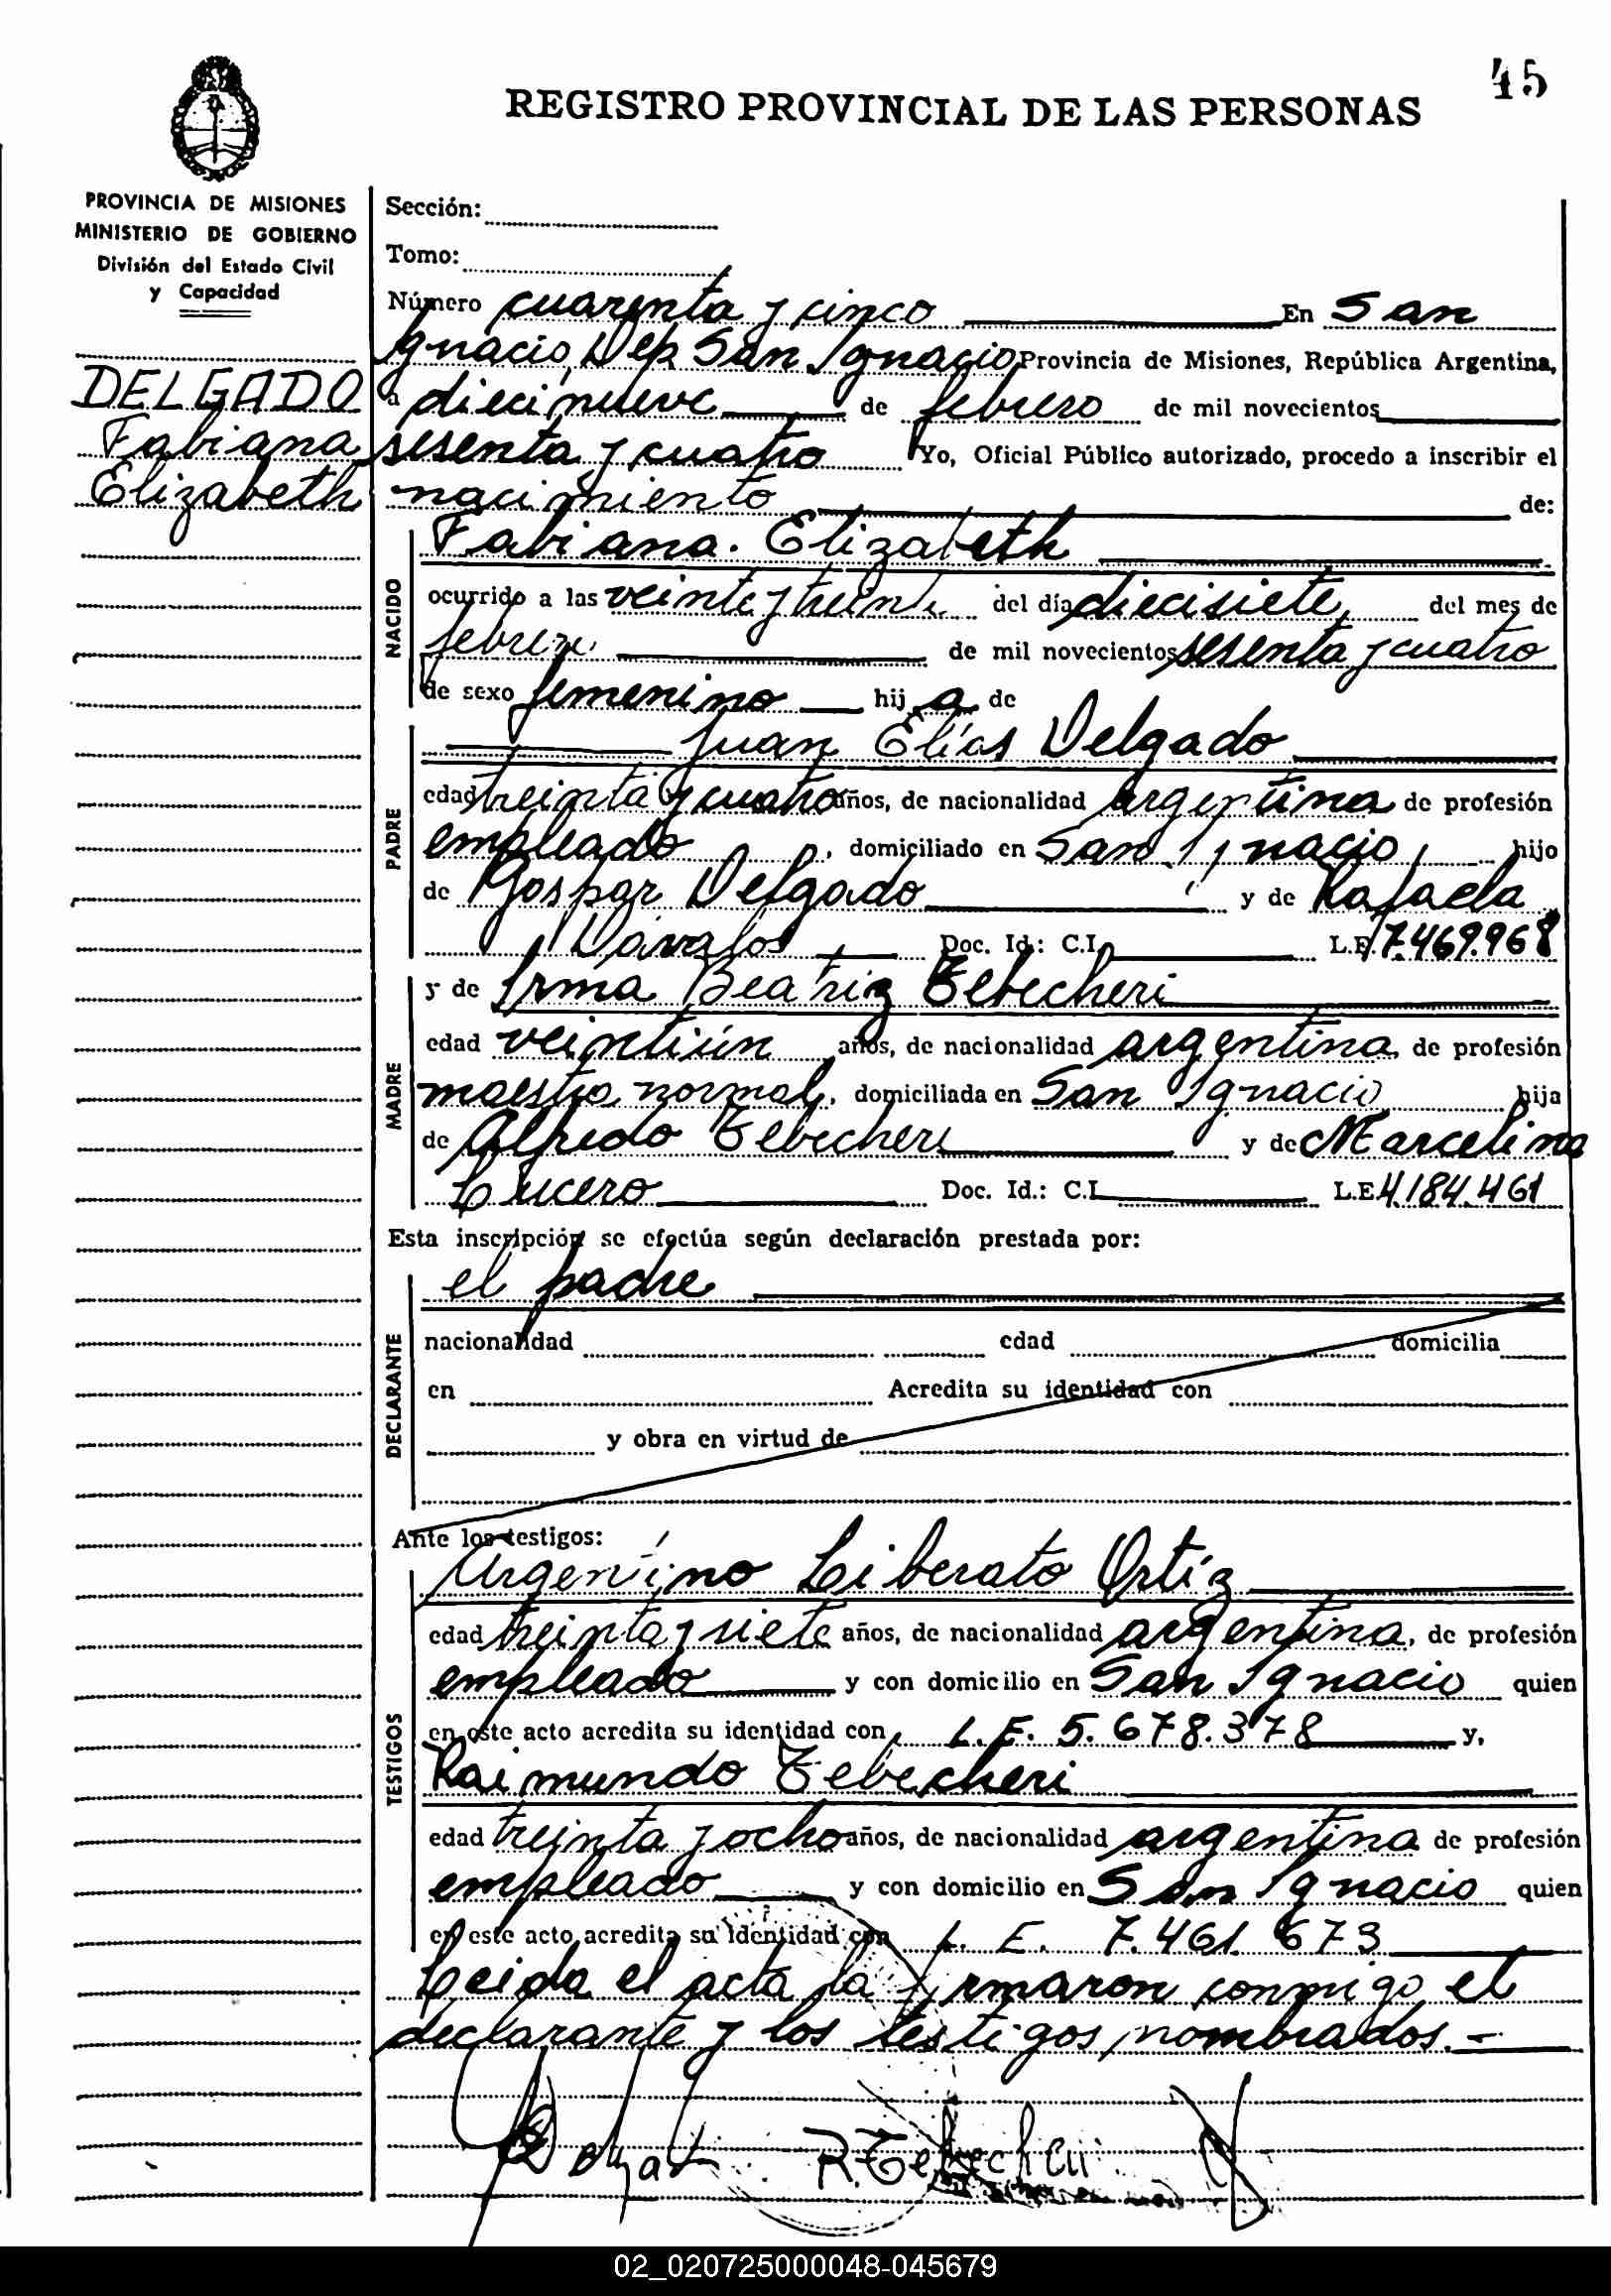 45
REGISTRO PROVINCIAL DE LAS PERSONAS
PROVINCIA DE MISIONES
MINISTERIO DE GOBIERNO
División del Estado Civil
y Capacidad
DELGADO
Fabiana
Elizabeth
Sección:
Tomo:
Número cuarenta y cinco En San
Ignacio, Dep. San Ignacio Provincia de Misiones, República Argentina,
a diecinueve de febrero de mil novecientos
sesenta y cuatro Yo, Oficial Público autorizado, procedo a inscribir el
nacimiento de:
NACIDO
Fabiana. Elizabeth
ocurrido a las veinte y treinta del día diecisiete, del mes de
febrero de mil novecientos sesenta y cuatro
de sexo femenino hij a de
PADRE
Juan Elías Delgado
edad treinta y cuatro años, de nacionalidad argentina de profesión
empleado, domiciliado en San Ignacio, hijo
de Gaspar Delgado y de Rafaela
Dávalos Doc. Id.: C.I. L.E. 7.469.968
MADRE
y de Irma Beatriz Tebecheri
edad veintiún años, de nacionalidad argentina, de profesión
maestra normal, domiciliada en San Ignacio hija
de Alfredo Tebecheri y de Marcelina
Lucero Doc. Id.: C.I. L.E. 4.184.461
Esta inscripción se efectúa según declaración prestada por:
DECLARANTE
el padre
nacionalidad edad domicilia
en Acredita su identidad con
y obra en virtud de
Ante los testigos:
TESTIGOS
Argentino Liberato Ortíz
edad treinta y siete años, de nacionalidad argentina, de profesión
empleado y con domicilio en San Ignacio quien
en este acto acredita su identidad con L.E. 5.678.378 y,
Raimundo Tebecheri
edad treinta y ocho años, de nacionalidad argentina de profesión
empleado y con domicilio en San Ignacio quien
en este acto acredita su identidad con L.E. 7.461.673
Leida el acta la firmaron conmigo el
declarante y los testigos nombrados.-
R. Tebecheri
02_020725000048-045679